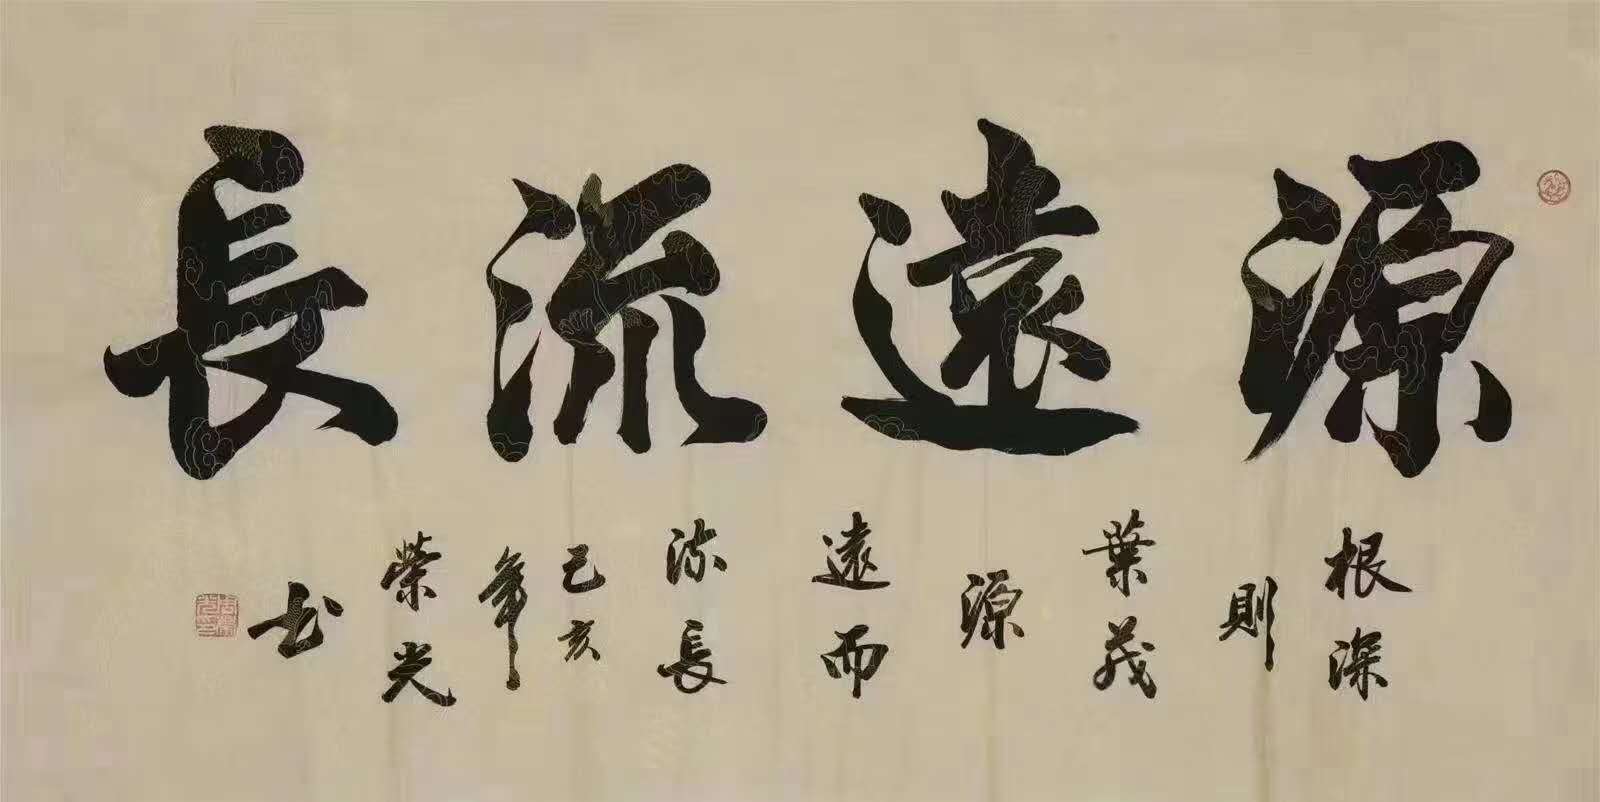 源遠流長
根深
則
葉茂
源
遠而
流長
己亥
年
榮光
书